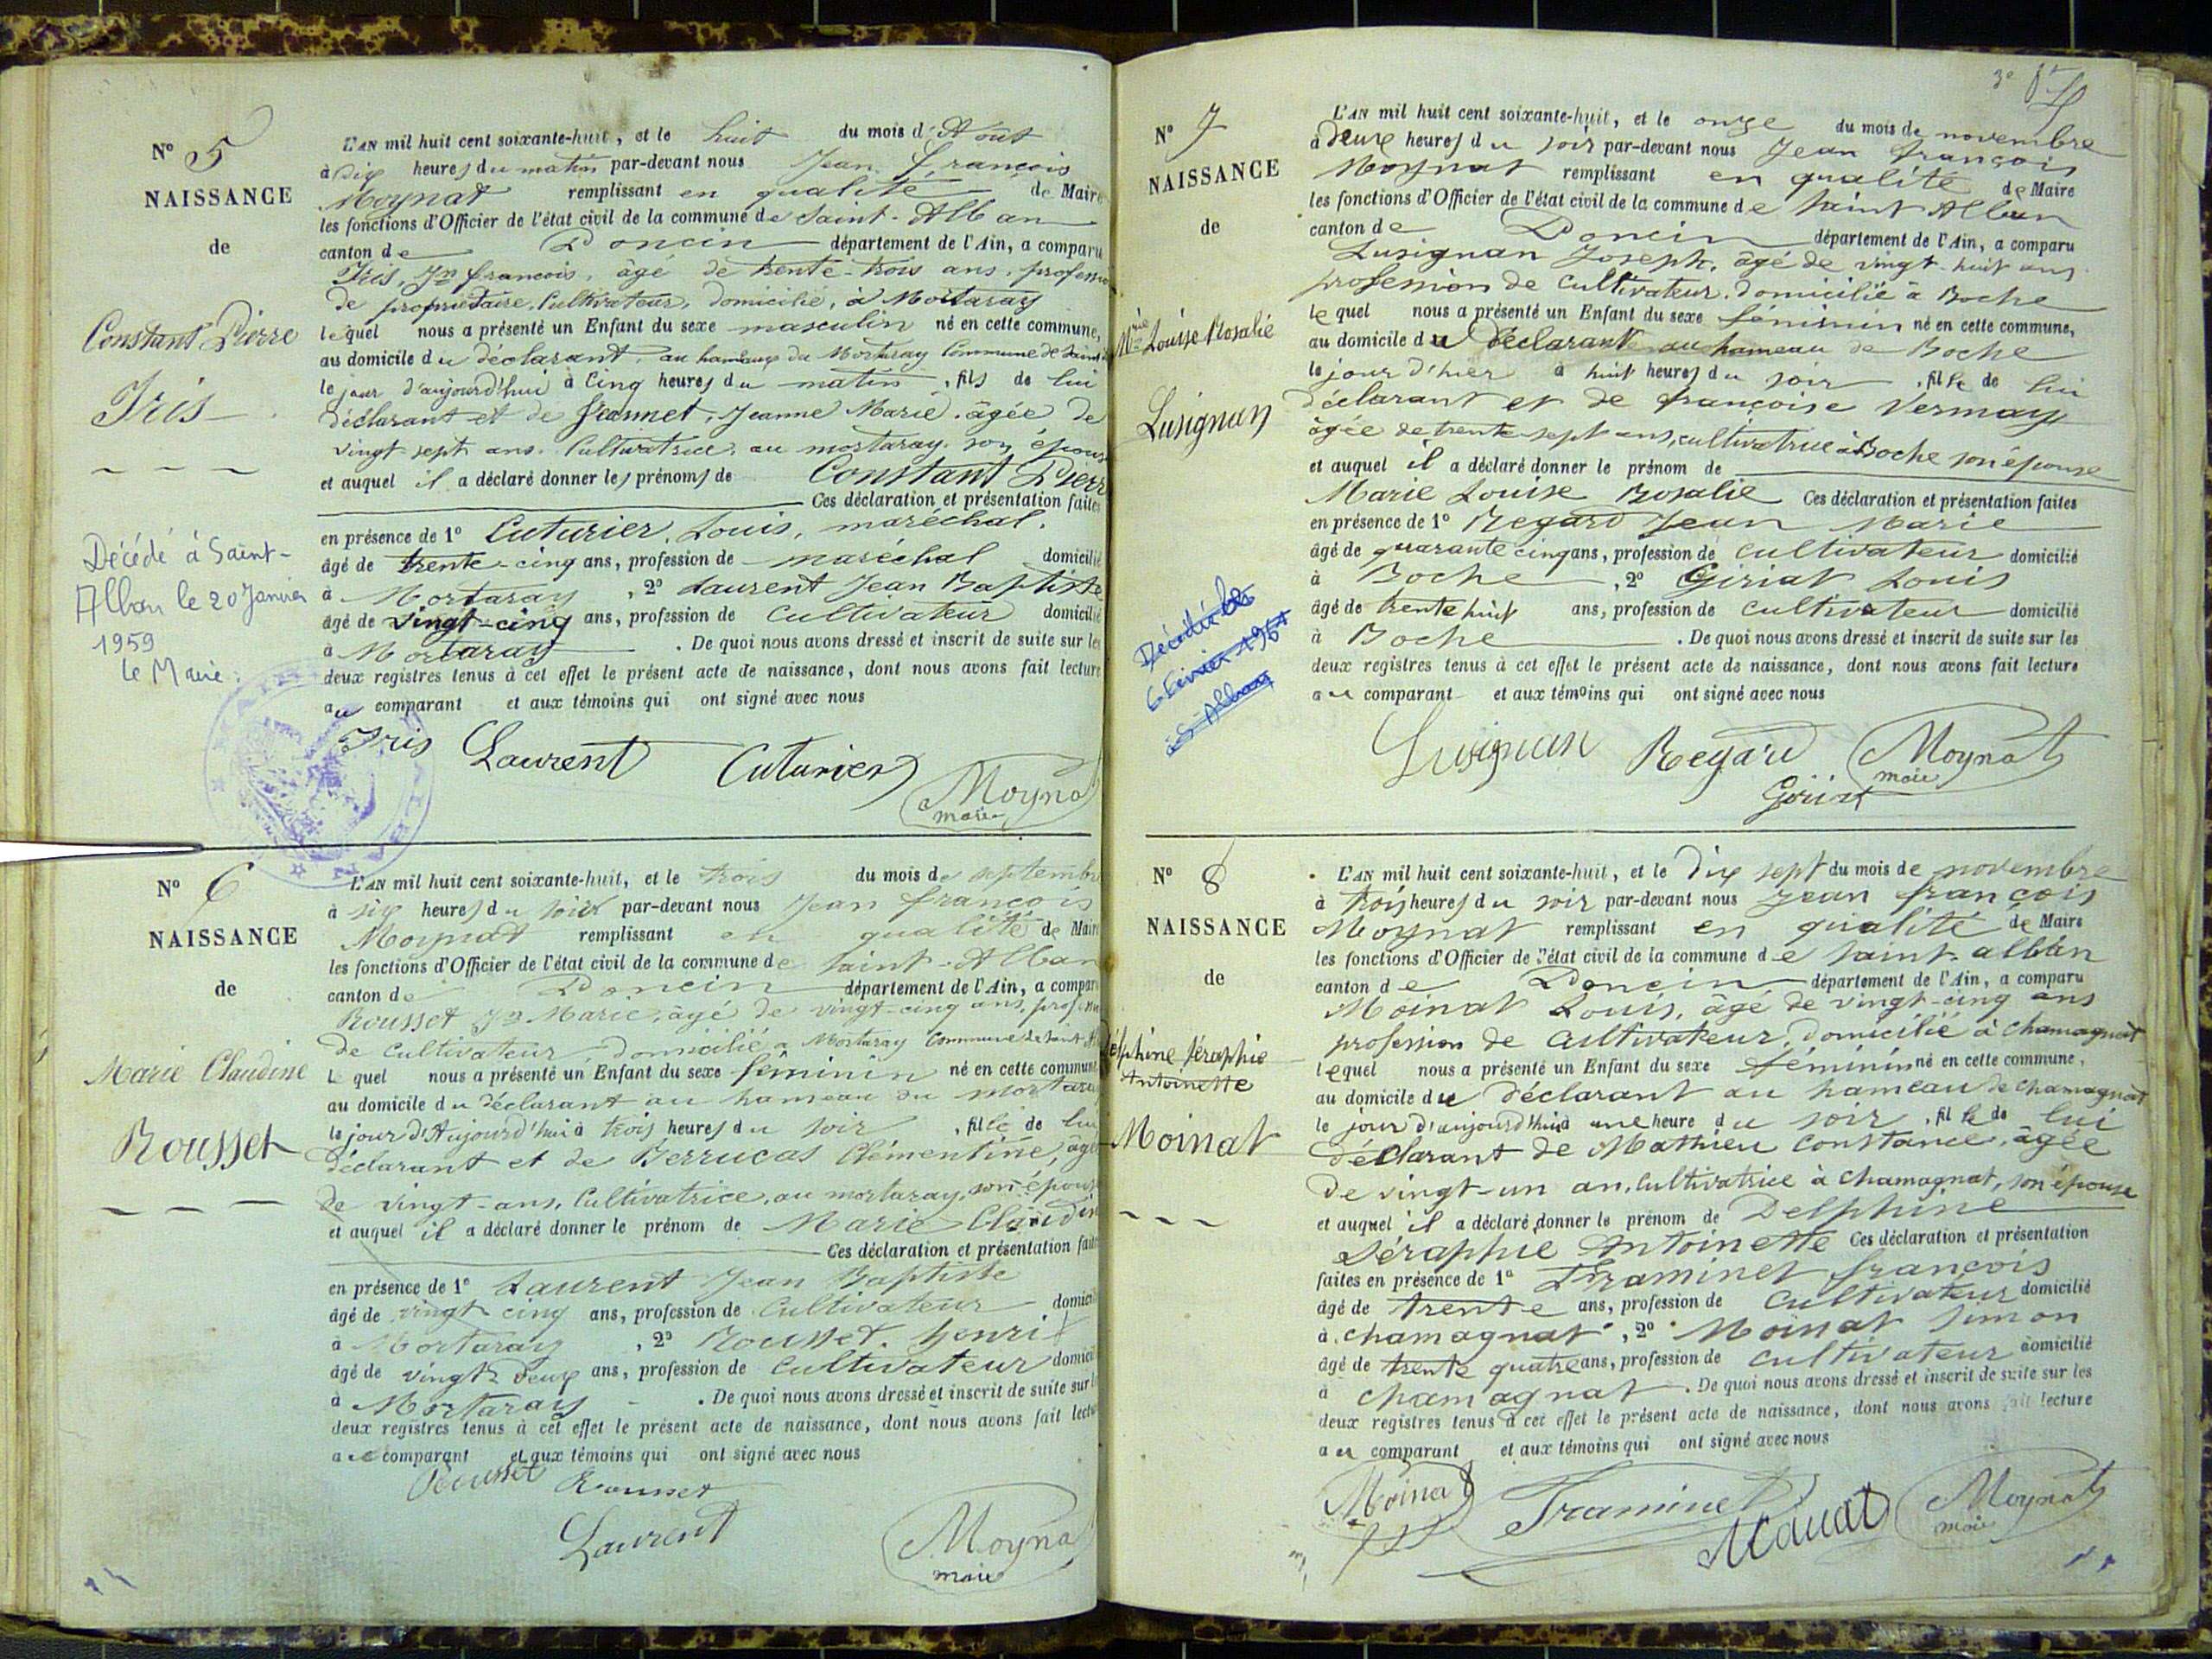 N° 5
NAISSANCE
de
Constant Pierre
Iris
Décédé à Saint-
Alban le 20 Janvier
1959
Le Maire :
L'AN mil huit cent soixante-huit, et le huit du mois d'Août
à dix heures du matin par-devant nous Jean François
Moynat remplissant en qualité de Maire
les fonctions d'Officier de l'état civil de la commune de Saint-Alban
canton de Poncin département de l'Ain, a comparu
Iris, Jn françois, âgé de trente-trois ans, profession
de propriétaire, Cultivateur, domicilié, à Mortaray
lequel nous a présenté un Enfant du sexe masculin né en cette commune,
au domicile du déclarant, au hameau du Mortaray Commune de Saint
le jour d'aujourd'hui à Cinq heures du matin, fils de lui
déclarant et de Jeannet, Jeanne Marie, âgée de
vingt sept ans, Cultivatrice, au mortaray, son épouse
et auquel il a déclaré donner les prénoms de Constant Pierr
Ces déclaration et présentation faites
en présence de 1° Cuturier, Louis, maréchal.
âgé de trente-cinq ans, profession de maréchal domicilié
à Mortaray, 2° Laurent Jean Baptiste
âgé de vingt-cinq ans, profession de Cultivateur domicilié
à Mortaray. De quoi nous avons dressé et inscrit de suite sur les
deux registres tenus à cet effet le présent acte de naissance, dont nous avons fait lecture
au comparant et aux témoins qui ont signé avec nous
Iris Laurent Cuturier Moyna
maire
N° 6
NAISSANCE
de
Marie Claudine
Rousset
L'AN mil huit cent soixante-huit, et le trois du mois de septembr
à six heures du soir par-devant nous Jean françois
Moynat remplissant en qualité de Mair
les fonctions d'Officier de l'état civil de la commune de Saint-Alban
canton de Poncin département de l'Ain, a compar
Rousset Jn Marie, âgé de vingt-cinq ans, profession
de Cultivateur domicilié à Mortaray Commune de Saint Al
Lequel nous a présenté un Enfant du sexe féminin né en cette commune
au domicile du déclarant au hameau du mortaray
le jour d'Aujourd'hui à trois heures du soir, fille de lui
déclarant et de Berrucas Clémentine, âgé
de vingt-ans, Cultivatrice, au mortaray, son épouse
et auquel il a déclaré donner le prénom de Marie Claudin
Ces déclaration et présentation fait
en présence de 1° Laurent Jean Baptiste
âgé de vingt cinq ans, profession de Cultivateur domicil
à Mortaray, 2° Rousset. henri
âgé de vingt deux ans, profession de Cultivateur domici
à Mortaray. De quoi nous avons dressé et inscrit de suite sur l
deux registres tenus à cet effet le présent acte de naissance, dont nous avons fait lectu
au comparant et aux témoins qui ont signé avec nous
Rousset Rousset
Laurent Moyna
maire
N° 7
NAISSANCE
de
Mie Louise Rosalie
Lusignan
Décédée le
6 février 1961
à St Alban
L'AN mil huit cent soixante-huit, et le onze du mois de novembre
à deux heures du soir par-devant nous Jean françois
Moynat remplissant en qualité de Maire
les fonctions d'Officier de l'état civil de la commune de Saint Alban
canton de Poncin département de l'Ain, a comparu
Lusignan Joseph, âgé de vingt-huit ans
profession de Cultivateur, domicilié à Boche
lequel nous a présenté un Enfant du sexe féminin né en cette commune,
au domicile du Déclarant au hameau de Boche
le jour d'hier à huit heures du soir, fille de lui
déclarant et de françoise Vermay
âgée de trente-sept ans, cultivatrice à Boche son épouse
et auquel il a déclaré donner le prénom de
Marie Louise Rosalie Ces déclaration et présentation faites
en présence de 1° Regard Jean Marie
âgé de quarante cinq ans, profession de Cultivateur domicilié
à Boche, 2° Giriat Louis
âgé de trente huit ans, profession de Cultivateur domicilié
à Boche. De quoi nous avons dressé et inscrit de suite sur les
deux registres tenus à cet effet le présent acte de naissance, dont nous avons fait lecture
au comparant et aux témoins qui ont signé avec nous
Lusignan Regard Moynat
maire
Giriat
N° 8
NAISSANCE
de
Delphine Séraphie
Antoinette
Moinat
L'AN mil huit cent soixante-huit, et le Dix sept du mois de novembre
à trois heures du soir par-devant nous Jean françois
Moynat remplissant en qualité de Maire
les fonctions d'Officier de l'état civil de la commune de Saint-alban
canton de Poncin département de l'Ain, a comparu
Moinat Louis, âgé de vingt-cinq ans
profession de Cultivateur, domicilié à chamagnat
lequel nous a présenté un Enfant du sexe féminin né en cette commune,
au domicile du déclarant au hameau de chamagnat
le jour d'aujourd'hui à une heure du soir, fille de lui
déclarant de Mathieu Constance, âgée
de vingt-un an, Cultivatrice à chamagnat, son épouse
et auquel il a déclaré donner le prénom de Delphine
Séraphie Antoinette Ces déclaration et présentation
faites en présence de 1° Framinet françois
âgé de trente ans, profession de Cultivateur domicilié
à chamagnat, 2° Moinat Simon
âgé de trente quatre ans, profession de cultivateur domicilié
à chamagnat. De quoi nous avons dressé et inscrit de suite sur les
deux registres tenus à cet effet le présent acte de naissance, dont nous avons fait lecture
au comparant et aux témoins qui ont signé avec nous
Moinat Framinet Moinat Moynat
maire